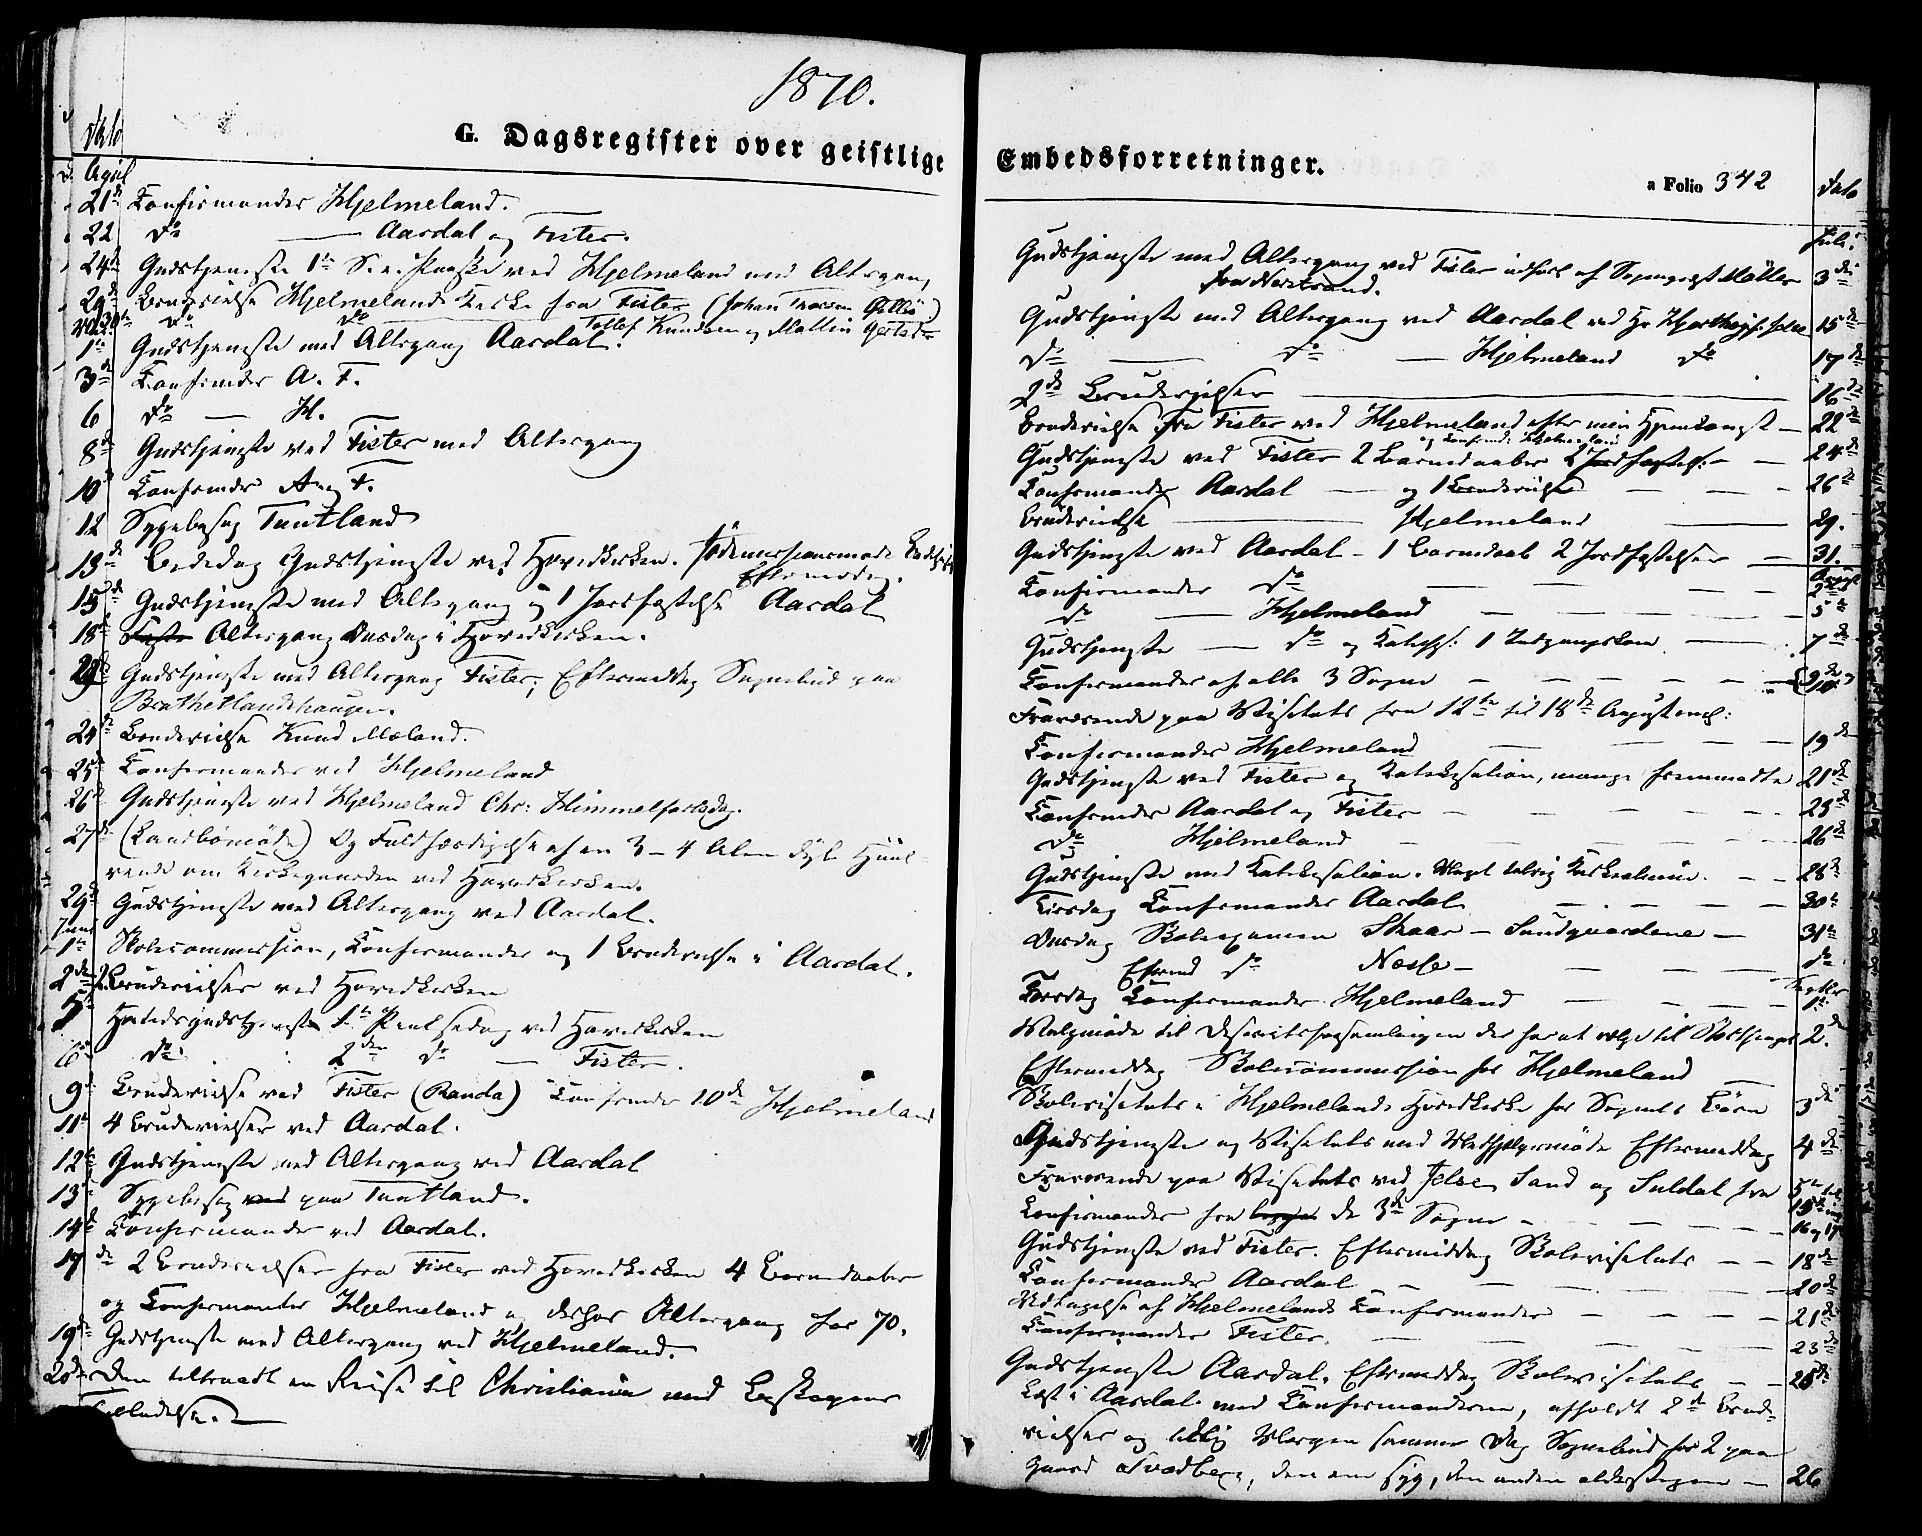 1870.
G. Dagsregister over geistlige
Dato
April
21de Confirmander Hjelmeland.
22 do — Aardal og Fister.
24de Gudstjeneste 1ste S. e. Paaske ved Hjelmeland med Altergang
29de Brudevielse Hjelmelands Kirke fra Fister (Johan
30te do do Tollef Knudsen og Malli
1ste Gudstjeneste med Altergang Aardal.
3de Confirmder A. F.
6 do — H.
8de Gudstjeneste ved Fister med Altergang
10de Confirmder A. og F.
12 Sygebesøg Tuntland
13de Bededag Gudstjeneste ved Hovedkirken.
Eftermiddag.
15de Gudstjeneste med Altergang og 1 Jordfæstelse Aardal
18de Altergang Onsdag i Hovedkirken.
Gudstjeneste med Altergang Fister; Eftermiddag Sognebud paa
Brathetlandshaugen.
24de Brudevielse Knud Mæland.
25de Confirmander ved Hjelmeland
26de Gudstjeneste ved Hjelmeland Chr: Himmelfartsdag.
27de (Landbomøde) Og Fuldfærdigelse af en 3–4 Alen dyb
rende om Kirkegaarden ved Hovedkirken.
29de Gudstjeneste med Altergang ved Aardal.
Juni
1ste Skolecommission, Confirmander og 1 Brudevielse i Aardal.
2de 2 Brudevielser ved Hovedkirken
5te Høitidsgudstjeneste 1ste Pintsedag ved Hovedkirken
6te do 2den do — Fister.
9de Brudevielse ved Fister (Randa) Confirmder 10de Hjelmeland
11te 4 Brudevielser ved Aardal.
12te Gudstjeneste med Altergang ved Aardal
13de Sygebesøg ved paa Tuntland.
14de Confirmander ved Aardal.
17de 2 Brudevielser fra Fister ved Hovedkirken 4 Barnedaaber
og Confirmanter Hjelmeland og derhos Altergang for 70.
19de Gudstjeneste med Altergang ved Hjelmeland.
20de Den tiltraadt en Reise til Christiania med Biskopens
Tilladelse.
Embedsforretninger.
a Folio 342
Dato
Juli.
Gudstjeneste med Altergang ved Fister udført af Sognepræst Møller 3die
fra Nerstrand.
Gudstjeneste med Altergang ved Aardal ved Hr 15de
do — do — Hjelmeland do 17de
2de Brudevielser — 16de
Brudevielse fra Fister ved Hjelmeland efter min Hjemkomst — 22de
og Confirmd: Hjelmeland
Gudstjeneste ved Fister 2 Barnedaaber 2 Jordfæstels: — 24de
Confirmander Aardal — og 1 Brudevielse — 26de
Brudevielse — Hjelmeland — 29.
Gudstjeneste ved Aardal — 1 Barnedaab 2 Jordfæstelser — 31.
August
Confirmander do — 2den
do — Hjelmeland — 5te
Gudstjeneste — do og Katechs: 1 Indgangskone — 7de
Confirmander af alle 3 Sogne — 9de 10de
Fraværende paa Visitats fra 12te til 18de August incl:
Confirmander Hjelmeland — 19de
Gudstjeneste ved Fister og Katekisation, mange fremmødte 21de
Confirmder Aardal og Fister — 23de
do Hjelmeland — 26de
Gudstjeneste med Katekisation. 28de
Tirsdag Confirmander Aardal — 30te
Onsdag Skoleexamen Skaar — Sundgaardene — 31te
Efterm do Nesse — do
Septbr
Torsdag Confirmander Hjelmeland — 1ste
Valgmøde til Districtsforsamlingen der har at valge til Storthinget 2den
Eftermiddag Skolecommission for Hjelmeland
Skolevisitats i Hjelmelands Hovedkirke for Sognets Børn 3die
Gudstjeneste og Visitats med Medhjælpermøde Eftermiddag 4de
Fraværende paa Visitats ved Jelse, Sand og Suldal fra 5te til
15de incl
Confirmander fra begge de 3de Sogne — 16 og 17
Gudstjeneste ved Fister. Eftermiddag Skolevisitats — 18de
Confirmander Aardal — 20de
Modtagelse af Hjelmelands Confirmander — 21de
Confirmander Fister. — 23de
Gudstjeneste Aardal. Eftermiddag Skolevisitats — 25de
Læst i Aardal med Confirmanderne, afholdt 2de Brude-
vielser og tidlig Morgen samme Dag Sognebud for 2 paa
Gaard Svadberg, den ene syg, den anden alderstegen — 26